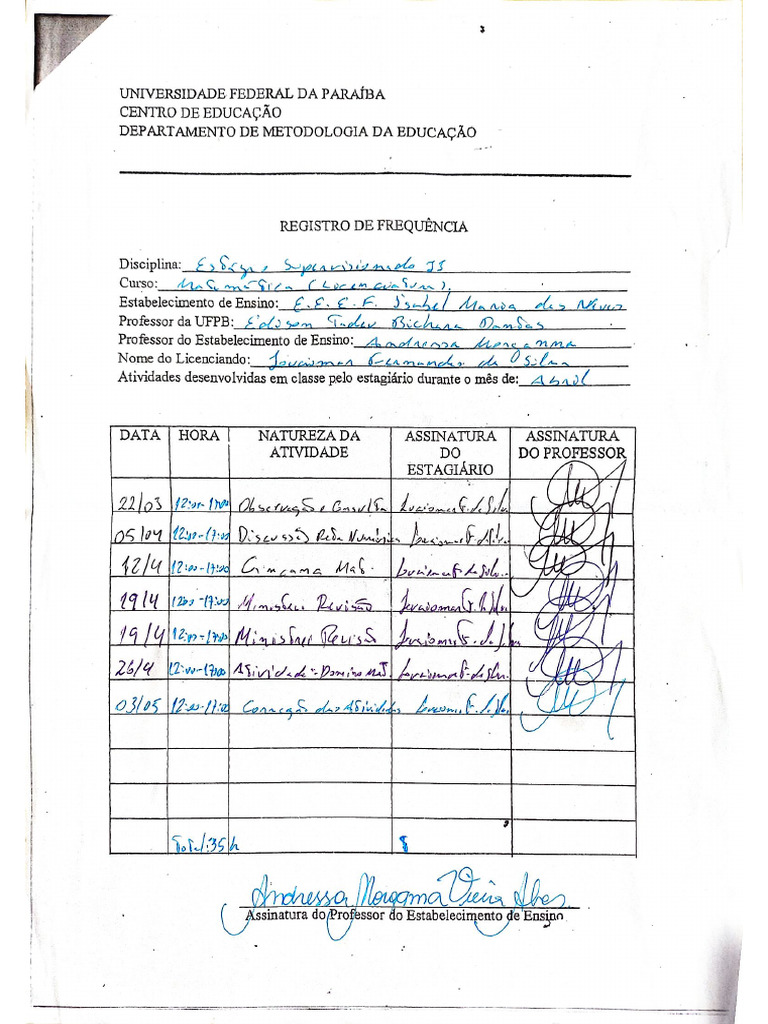 UNIVERSIDADE FEDERAL DA PARAÍBA
CENTRO DE EDUCAÇÃO
DEPARTAMENTO DE METODOLOGIA DA EDUCAÇÃO
REGISTRO DE FREQUÊNCIA
Disciplina: Estágio Supervisionado II
Curso: Matemática (Licenciatura).
Estabelecimento de Ensino: E.E.E.F. Isabel Maria das Neves
Professor da UFPB: Edison Tadeu Bichara Dantas
Professor do Estabelecimento de Ensino: Andressa Morganna
Nome do Licenciando: Fernandes da Silva
Atividades desenvolvidas em classe pelo estagiário durante o mês de: Abril
DATA HORA NATUREZA DA ATIVIDADE ASSINATURA DO ESTAGIÁRIO ASSINATURA DO PROFESSOR
22/03 12:00-17:00 Observação e Consulta
05/04 12:00-17:00 Discussão Reta Numérica
12/4 12:00-17:00 Gincama Mat.
19/4 1200-17:00 Ministrei Revisão
19/4 12:00-17:00 Ministrei Revisão
26/4 12:00-17:00 Atividade - Domino Mat
03/05 12:00-17:00 Correção das Atividades
Total:35h
Andressa Morgama Vieira Alves
Assinatura do Professor do Estabelecimento de Ensino